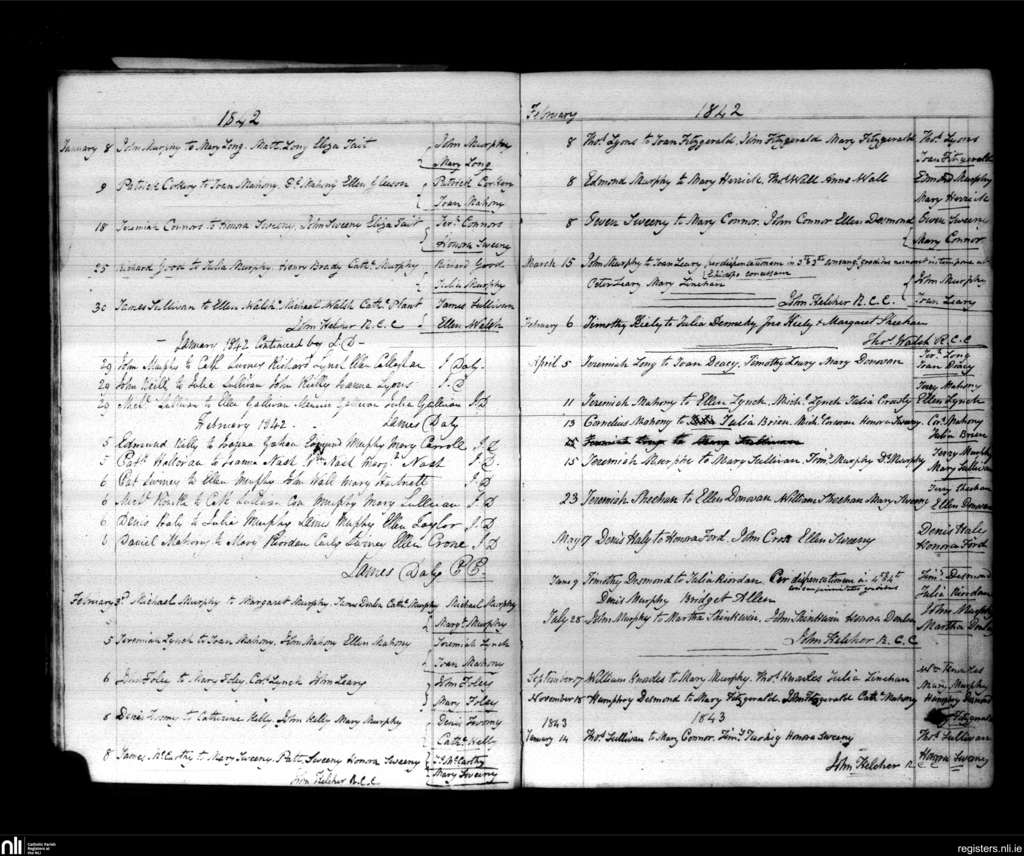 1842
January 8 John Murphy to Mary Long. Matt. Long Eliza Tait John Murphy
Mary Long
9 Patrick Corkery to Joan Mahony. Ellen Gleeson Patrick Corkery
Joan Mahony
18 Jeremiah Connors to Honora Sweeny. John Sweeny Eliza Tait Jer. Connors
Honora Sweeny
25 Richard Good to Julia Murphy. Henry Brady Cath. Murphy Richard Good
Julia Murphy
30 James Sullivan to Ellen Walsh. Michael Walsh Cath. Plant James Sullivan
John Kelcher R.C.C Ellen Walsh
January 1842 Continued by J D
29 John Murphy to Cath Richard Lynch Ellen Callaghan J Daly
29 John Neill to Julia Sullivan John Lyons J. D
29 Mich. Sullivan to Ellen Gallivan Julia Gallivan J D
February 1842. James Daly
5 Edmund Kelly to Murphy Mary Carroll J D
5 Patt Holloran to Nash Nash Marg. Nash J. D.
6 Pat to Ellen Murphy John Wall Mary J. D
6 Mich. to Cath Sullivan Con Murphy Mary Sullivan J. D
6 Denis Haly to Julia Murphy James Murphy Ellen Taylor J. D
6 Daniel Mahony to Mary Riordan Ellen Crone J D
James Daly P.P.
February 3rd Michael Murphy to Margaret Murphy. Cath. Murphy Michael Murphy
Margt. Murphy
5 Jeremiah Lynch to Joan Mahony. John Mahony Ellen Mahony Jeremiah Lynch
Joan Mahony
6 Foley to Mary Foley. Cor. Lynch John Leary John Foley
Mary Foley
8 Denis Twomy to Catherine Kelly. John Kelly Mary Murphy Denis Twomy
Cath. Kelly
8 James McCarthy to Mary Sweeny. Patt. Sweeny Honora Sweeny Js. McCarthy
John Kelcher R.C.C Mary Sweeny
February 1842
8 Thos. Lyons to Joan Fitzgerald. John Fitzgerald Mary Fitzgerald Thos. Lyons
Joan Fitzgerald
8 Edmond Murphy to Mary Herrick. Thos. Wall Anne Wall Edmond Murphy
Mary Herrick
8 Owen Sweeny to Mary Connor. John Connor Ellen Desmond Owen Sweeny
Mary Connor
March 15 John Murphy to Joan Leary
Peter Leary Mary Linehan John Murphy
John Kelcher R.C.C. Joan Leary
February 6 Timothy Kiely to Julia Dennedy Jno Kiely & Margaret Sheehan
Thos. Walsh R.C.C
April 5 Jeremiah Long to Joan Deacy. Timothy Leary Mary Donovan Jer. Long
Joan Deacy
11 Jeremiah Mahony to Ellen Lynch. Mich. Lynch Julia Crowly Jerry Mahony
Ellen Lynch
13 Cornelius Mahony to Julia Brien. Mich. Honora Sweeny. Cors. Mahony
Julia Brien
15 Jeremiah Murphy to Mary Sullivan. Timy. Murphy Murphy Jerry Murphy
Mary Sullivan
23 Jeremiah Sheehan to Ellen Donovan William Sheehan Mary Sweeny Jerry Sheehan
Ellen Donovan
May 17 Denis Haly to Honora Ford. John Cross Ellen Sweeny Denis Hale
Honora Ford
June 9 Timothy Desmond to Julia Riordan. Per dispensationem in 4 & 4 Tim. Desmond
consanguinitatis gradus
Denis Murphy Bridget Allen Julia Riordan
July 28 John Murphy to Martha Shinkwin. John Shinkwin Honora Donlea John Murphy
Martha
John Kelcher R.C.C
September 17 William Knowles to Mary Murphy. Thos. Knowles Julia Linehan
Mary Murphy
November 18 Humphry Desmond to Mary Fitzgerald. John Fitzgerald Cath. Mahony Humphry Desmond
Fitzgerald
1843 1843
January 14 Thos. Sullivan to Mary Connor. Timy. Tuohig Honora Sweeny Thos. Sullivan
Honora Sweeny
John Kelcher R.
nli Catholic Parish Registers at the NLI
registers.nli.ie